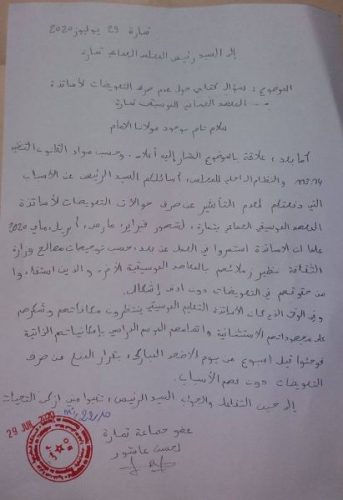 تمارة 29 يوليوز 2020
إلى السيد رئيس المجلس الجماعي تمارة
الموضوع: سؤال كتابي حول عدم صرف التعويضات لأساتذة
المعهد الجماعي الموسيقي تمارة
سلام تام بوجود مولانا الامام
أما بعد، علاقة بالموضوع المشار إليه أعلاه، وحسب مواد القانون التنظيمي
113.14 والنظام الداخلي للمجلس، أسائلكم السيد الرئيس عن الأسباب
التي دفعتكم لعدم التأشير عن صرف حوالات التعويضات لأساتذة
المعهد الموسيقي الجماعي بتمارة، لشهور فبراير، مارس، أبريل، ماي 2020
علما أن الأساتذة استمروا في العمل عن بعد، حسب توجيهات مصالح وزارة
الثقافة نظير زملائهم بالمعاهد الموسيقية الأخرى والذين استفادوا
من حقوقهم في التعويضات دون أدنى إشكال.
وفي الوقت الذي كان أساتذة التعليم الموسيقي ينتظرون مكافأتهم وشكرهم
على مجهوداتهم الاستثنائية وإتمامهم الموسم الدراسي بإمكانياتهم الذاتية
فوجئوا قبل أسبوع من يوم الأضحى المبارك، بقرار المنع من صرف
التعويضات دون فهم الأسباب.
إلى حين التفاعل والجواب السيد الرئيس، تقبلوا مني أزكى التحيات
29 JUIL 2020
عضو جماعة تمارة
لحسن عاشور